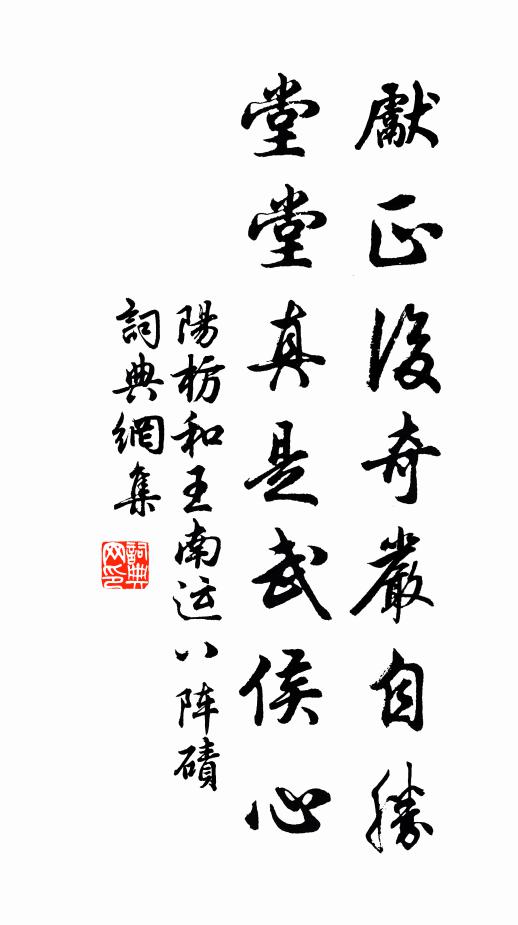 獻正後奇嚴自勝
堂堂真是武侯心
陽枋和王南运八阵磧
詞典網集
詞典网印